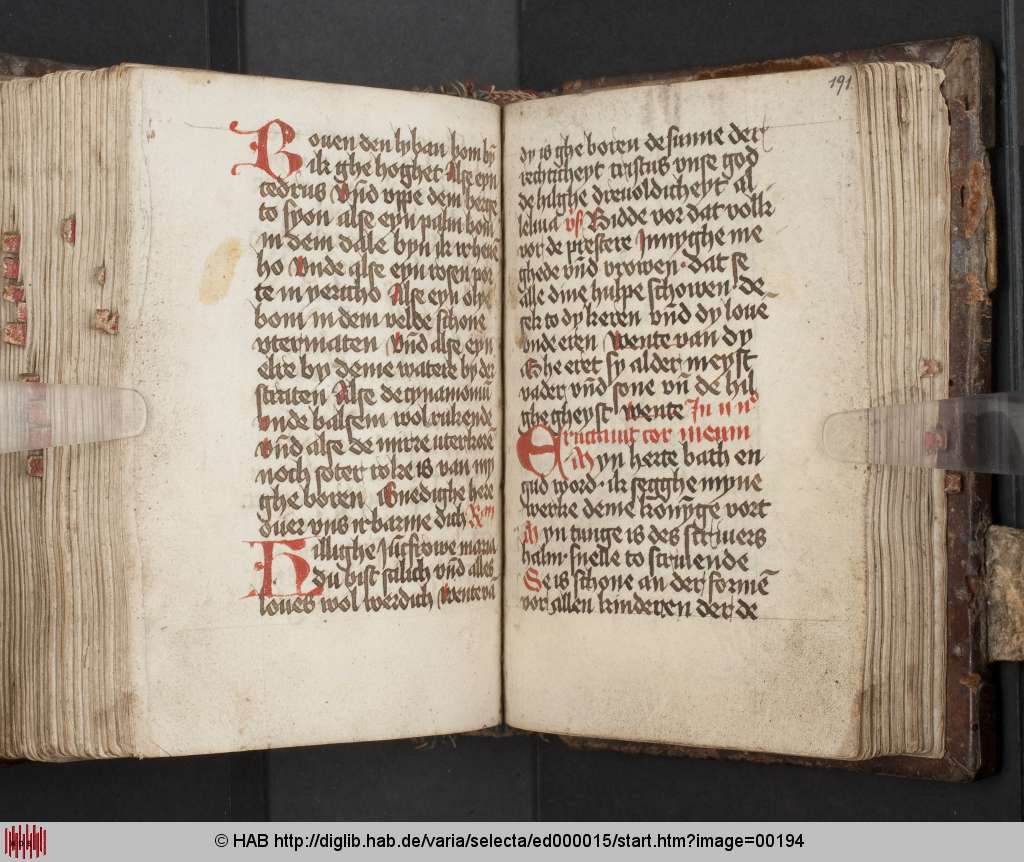 Bouen den lyban bom bȳ
ik ghe hoghet Alse eyn
cedrus Vnd vppe dem berge
to syon alse eyn palm bom
in dem dale byn ik vrheuē
ho Vnde alse eyn rosen por
te in yericho Alse eyn olye
bom in dem velde schone
vtermaten Vnd alse eyn
elre by deme watere by der
straten Alse de cynamomū
vnde balsem wol rukende
Vnd alse de mirre uterkorē
noch soter roke is van my
ghe boren Gnedighe here
ouer vns irbarme dich
Hillighe Jūcfrowe maria
du bist salich vnd alles
loues wol werdich Wente vā
191
dy is ghe boren de sunne der
rechticheyt cristus vnse god
de hilghe dreuoldicheyt al
leluia vs Bidde vor dat volk
vor de prestere Innyghe me
ghede vnd vrowen· dat se
alle dine hulpe schowen de
sek to dy keren vnd dy loue
vnde eren Wente van dy
Ghe eret sy alder meyst
vader vnd sone vn̄ de hil
ghe gheyst Wente
Eructauit cor meum
Myn herte bath en
gud word· ik segghe myne
werke deme konȳge vort
Myn tunge is des scriuers
halm· snelle to scriuende
Se is schone an der formē
vor allen kinderen der de
© HAB http://diglib.hab.de/varia/selecta/ed000015/start.htm?image=00194